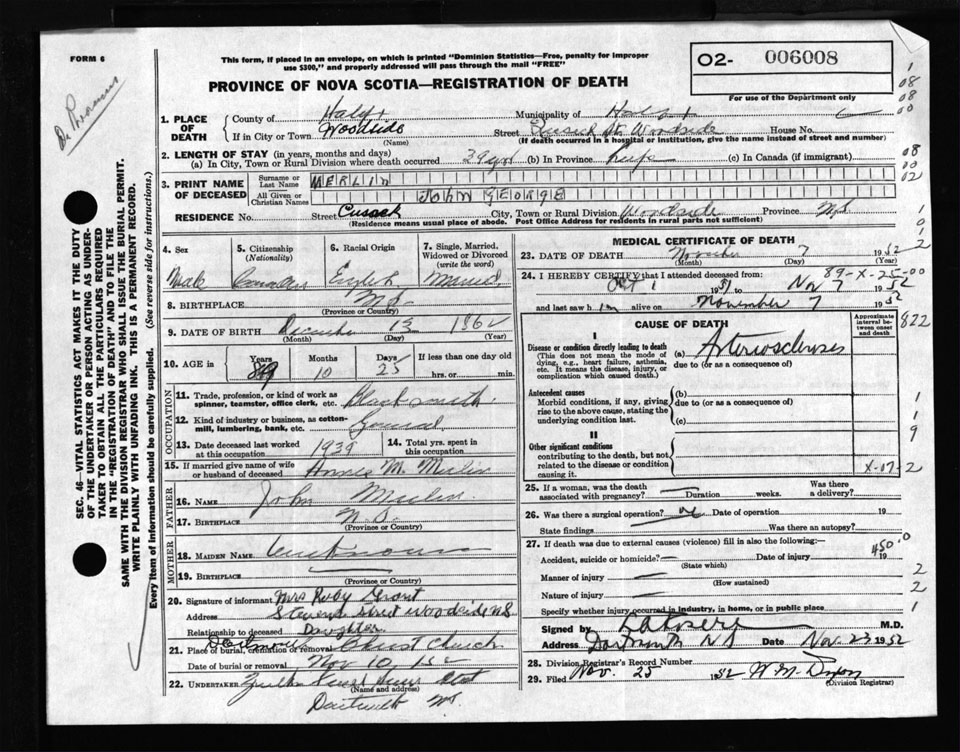 FORM 6
This form, if placed in an envelope, on which is printed "Dominion Statistics—Free, penalty for improper
use $300," and properly addressed will pass through the mail "FREE"
O2- 006008
For use of the Department only
PROVINCE OF NOVA SCOTIA—REGISTRATION OF DEATH
1. PLACE OF DEATH
County of Halifax Municipality of Halifax
If in City or Town Woodside Street Cusack St. Woodside House No.
(Name) (If death occurred in a hospital or institution, give the name instead of street and number)
2. LENGTH OF STAY (in years, months and days)
(a) In City, Town or Rural Division where death occurred 39 yrs (b) In Province Life (c) In Canada (if immigrant)
3. PRINT NAME OF DECEASED
Surname or Last Name MERLIN
All Given or Christian Names JOHN GEORGE
RESIDENCE No. Street Cusack City, Town or Rural Division Woodside Province N.S.
(Residence means usual place of abode. Post Office Address for residents in rural parts not sufficient)
4. Sex Male
5. Citizenship (Nationality) Canadian
6. Racial Origin English
7. Single, Married, Widowed or Divorced (write the word) Married
8. BIRTHPLACE N.S.
(Province or Country)
9. DATE OF BIRTH December 13 1862
(Month) (Day) (Year)
10. AGE in Years 89 Months 10 Days 25 If less than one day old
hrs. or min.
OCCUPATION
11. Trade, profession, or kind of work as spinner, teamster, office clerk, etc. Blacksmith
12. Kind of industry or business, as cotton-mill, lumbering, bank, etc. General
13. Date deceased last worked at this occupation 1939 14. Total yrs. spent in this occupation
15. If married give name of wife or husband of deceased M. Merlin
FATHER
16. NAME John Merlin
17. BIRTHPLACE N.S.
(Province or Country)
MOTHER
18. MAIDEN NAME unknown
19. BIRTHPLACE —
(Province or Country)
20. Signature of informant Mrs Ruby Grant
Address Stevens street Woodside N.S
Relationship to deceased Daughter
21. Place of burial, cremation or removal Dartmouth Christ Church
Date of burial or removal Nov 10, 1952
22. UNDERTAKER
(Name and address)
Dartmouth N.S.
MEDICAL CERTIFICATE OF DEATH
23. DATE OF DEATH November 7 1952
(Month) (Day)
89-X-25-00
24. I HEREBY CERTIFY that I attended deceased from:
Oct 1 1951 to Nov 7 1952
and last saw him alive on November 7 1952
CAUSE OF DEATH
Approximate interval between onset and death
822
I
Disease or condition directly leading to death
(This does not mean the mode of dying, e.g., heart failure, asthenia, etc. It means the disease, injury, or complication which caused death.)
(a) Arteriosclerosis
due to (or as a consequence of)
Antecedent causes
Morbid conditions, if any, giving rise to the above cause, stating the underlying condition last.
(b)
due to (or as a consequence of)
(c)
II
Other significant conditions
contributing to the death, but not related to the disease or condition causing it.
X-17-2
25. If a woman, was the death associated with pregnancy? — Duration weeks. Was there a delivery?
26. Was there a surgical operation? no Date of operation 19
State findings Was there an autopsy?
27. If death was due to external causes (violence) fill in also the following:—
Accident, suicide or homicide? — Date of injury 19
(State which)
450.0
Manner of injury —
(How sustained)
Nature of injury —
Specify whether injury occurred in industry, in home, or in public place
Signed by M.D.
Address Dartmouth N S Date Nov. 23 1952
28. Division Registrar's Record Number
29. Filed Nov. 25 1952
(Division Registrar)
SEC. 46—VITAL STATISTICS ACT MAKES IT THE DUTY
OF THE UNDERTAKER OR PERSON ACTING AS UNDER-
TAKER TO OBTAIN ALL THE PARTICULARS REQUIRED
IN THE "REGISTRATION OF DEATH" AND TO FILE THE
SAME WITH THE DIVISION REGISTRAR WHO SHALL ISSUE THE BURIAL PERMIT.
WRITE PLAINLY WITH UNFADING INK. THIS IS A PERMANENT RECORD.
Every item of information should be carefully supplied. (See reverse side for instructions.)